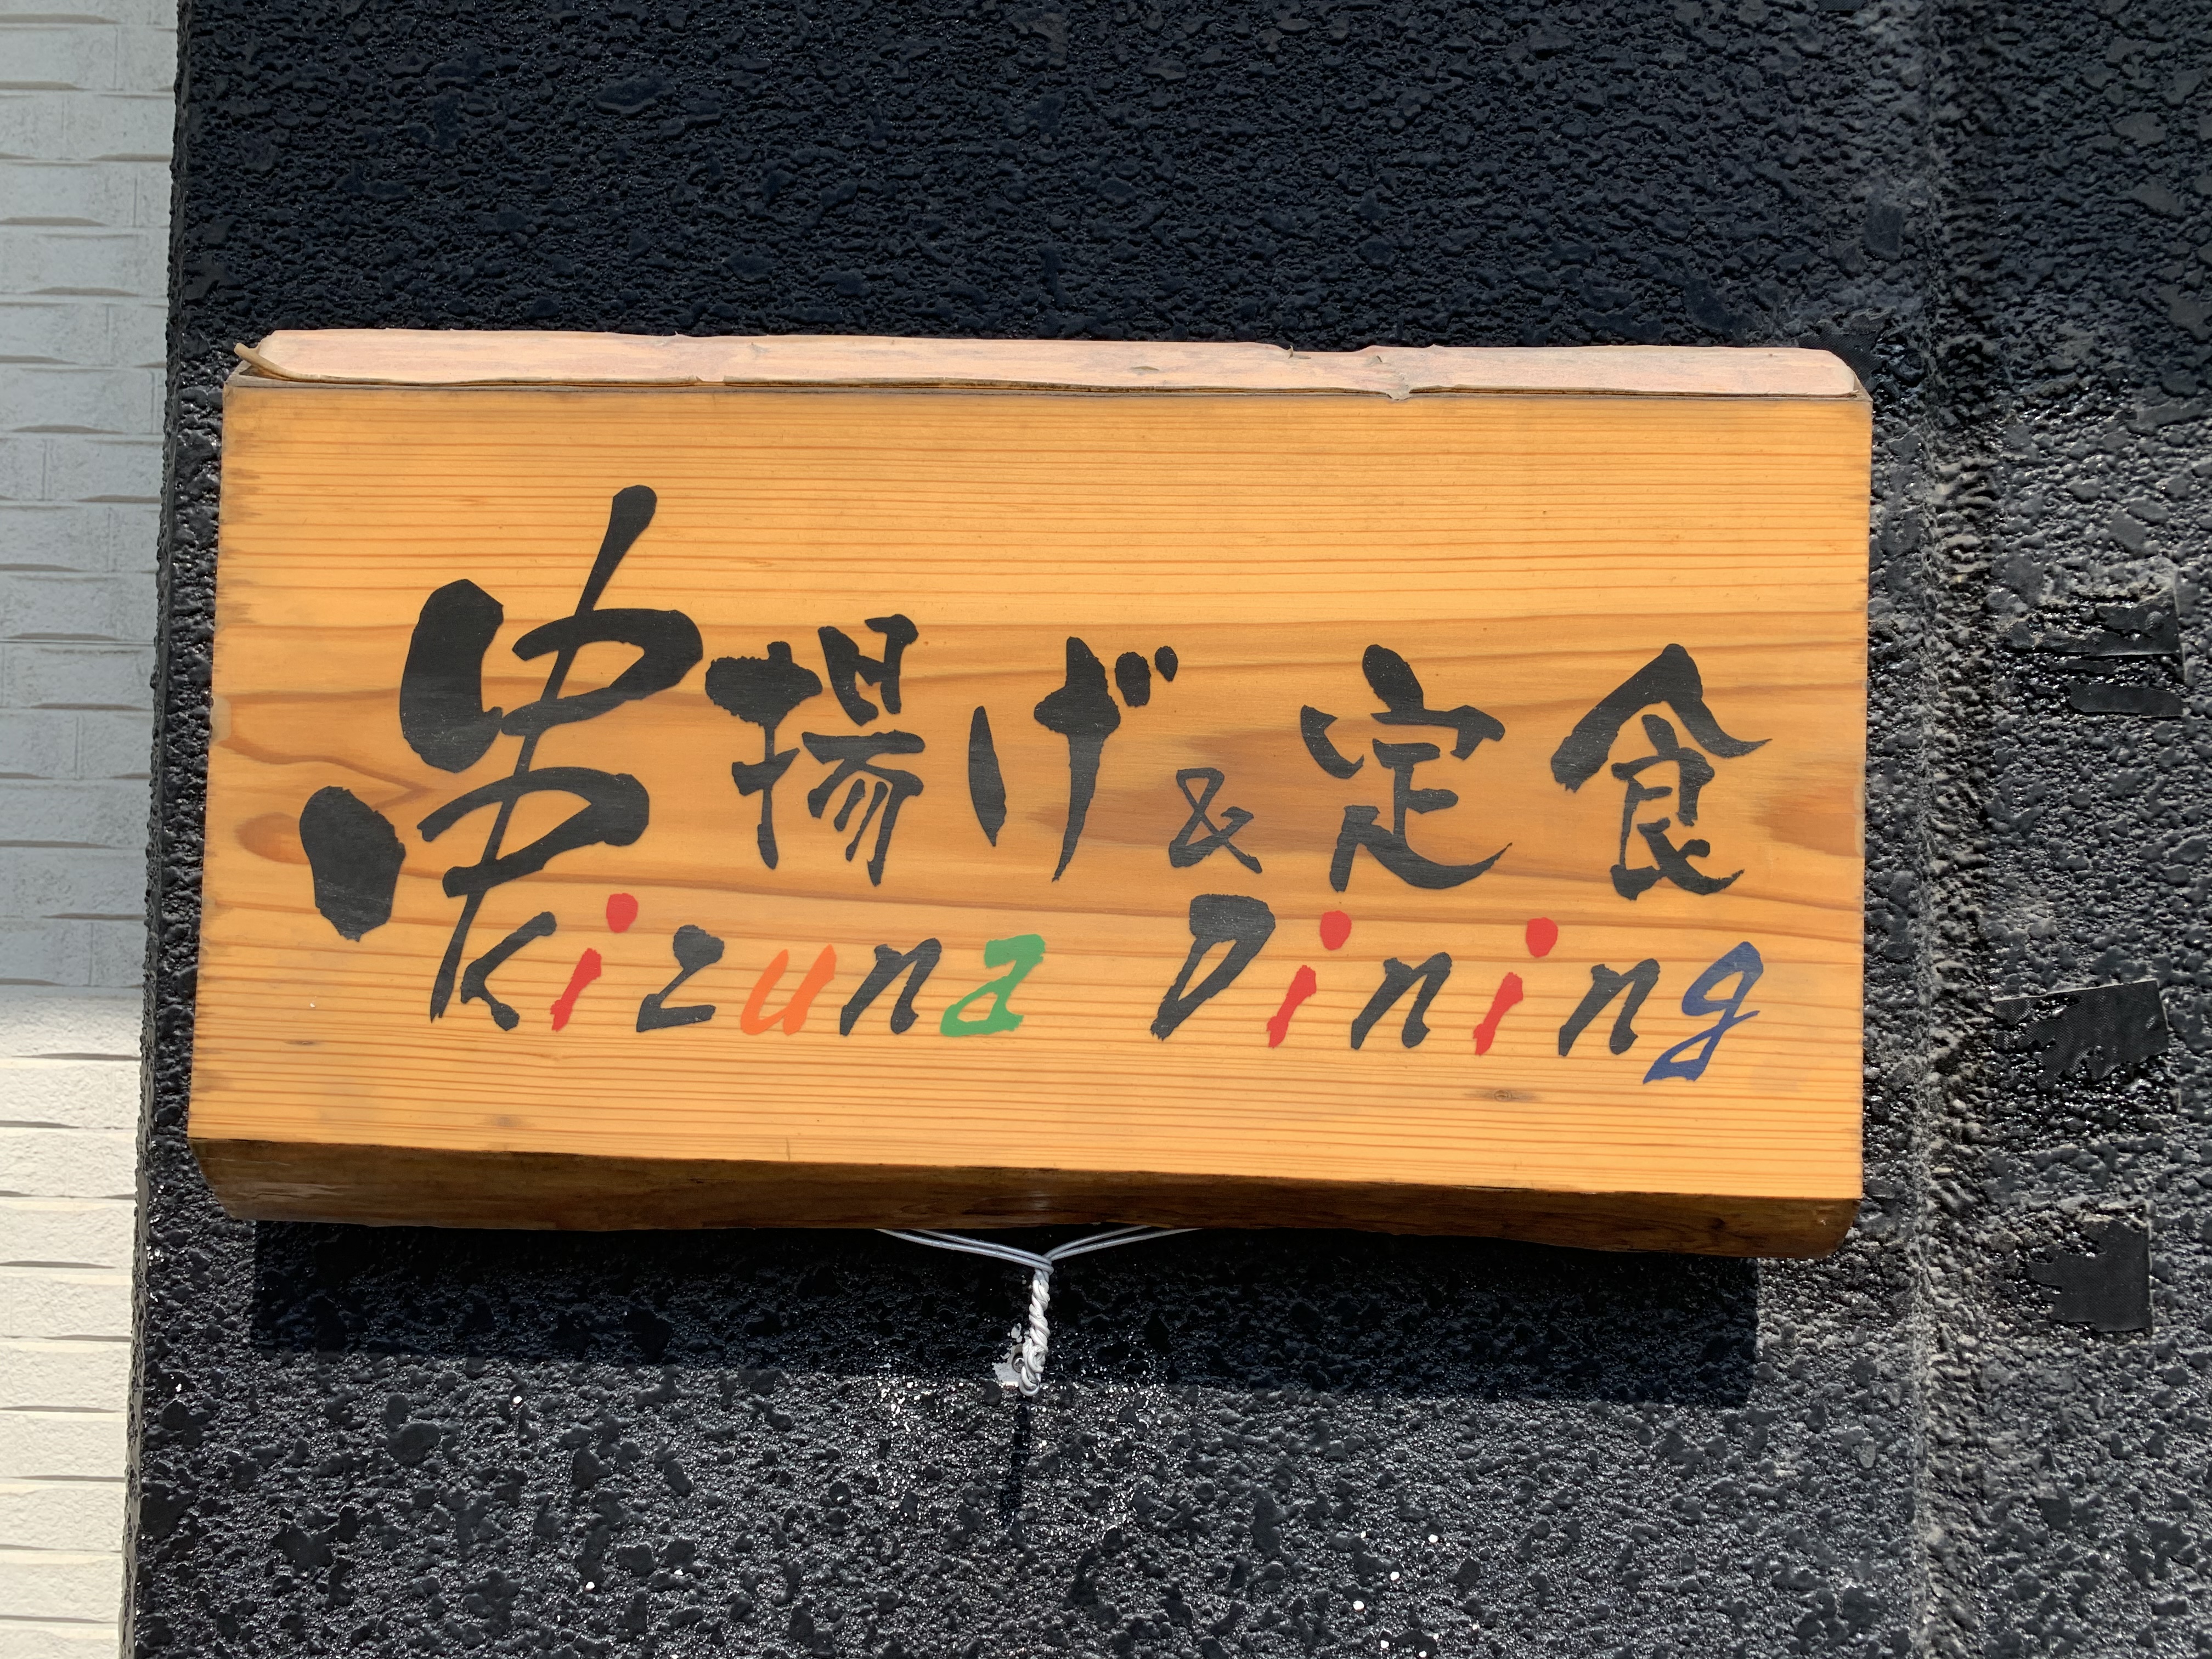 串揚げ&定食
Kizuna Dining